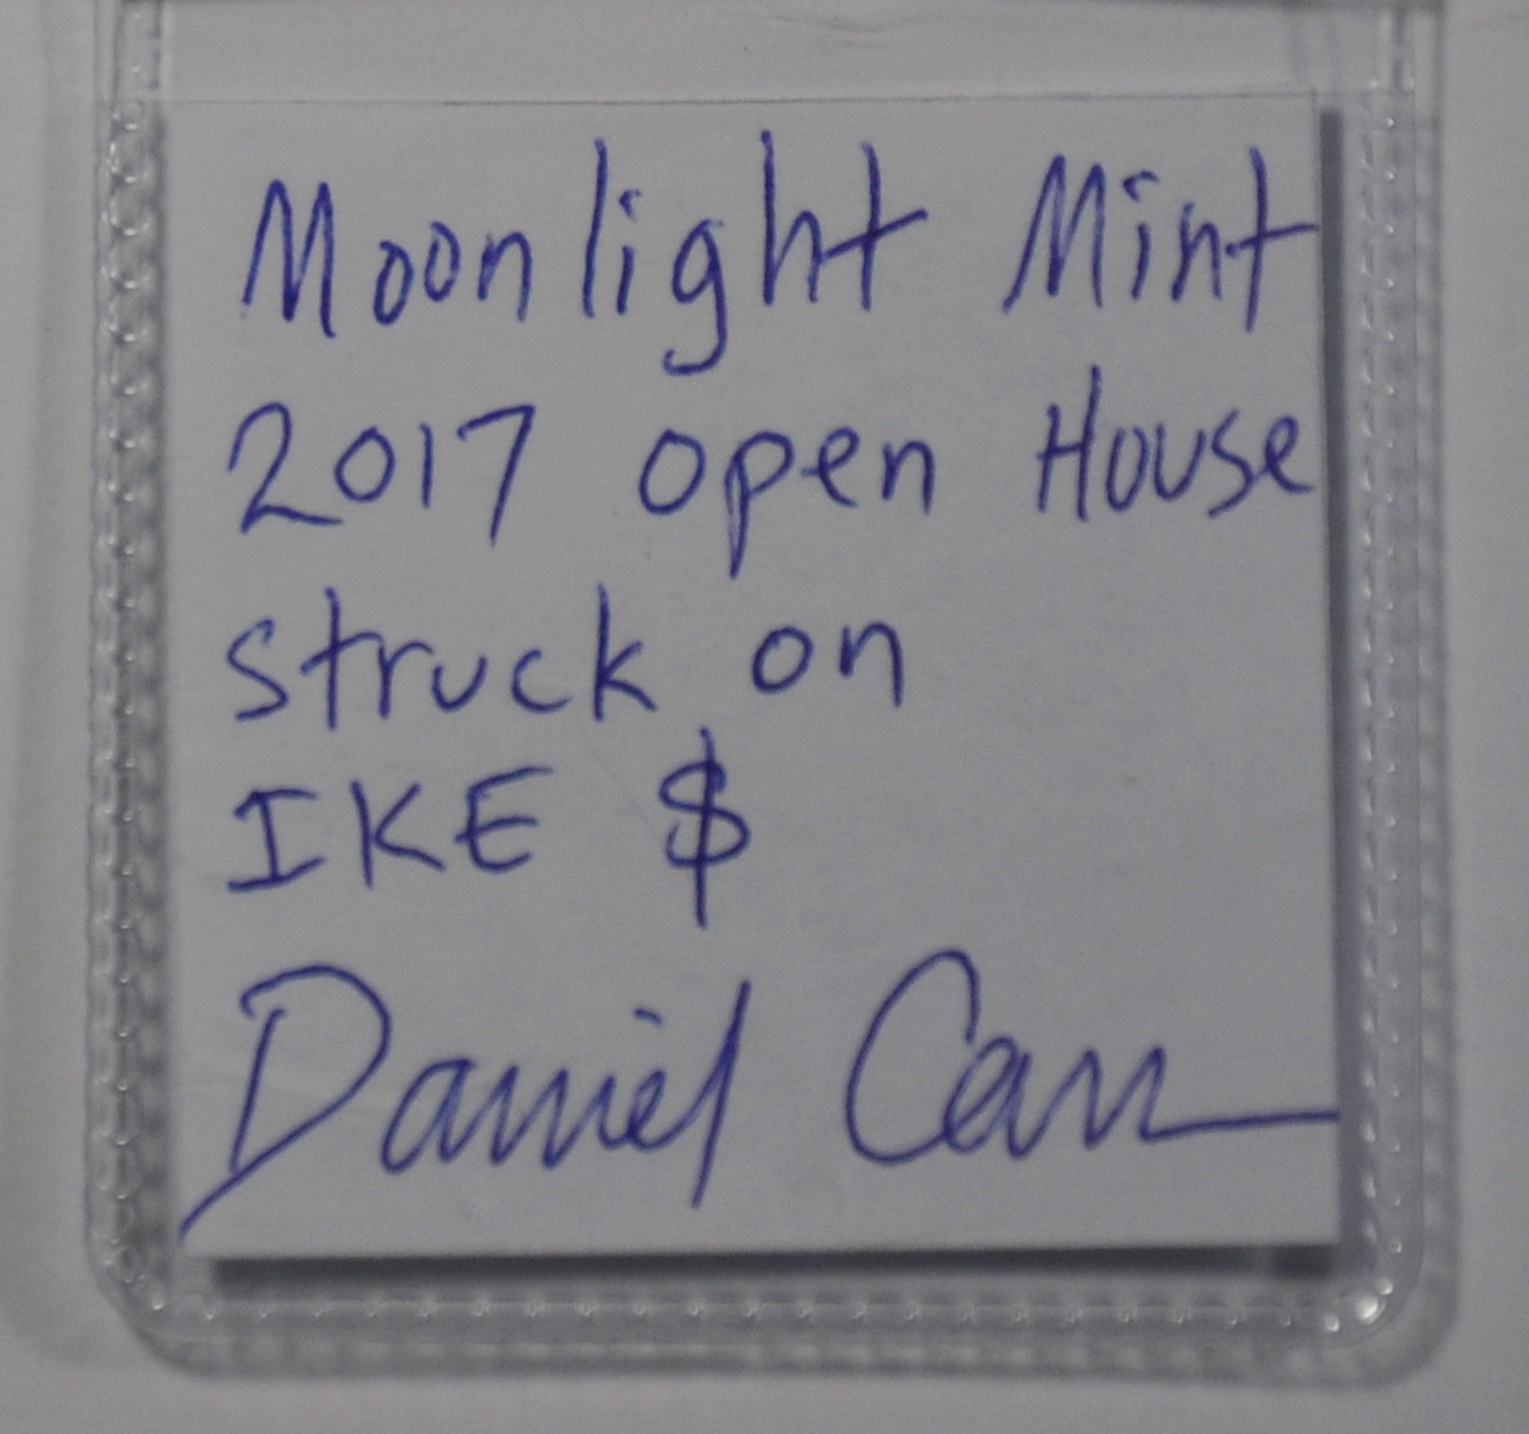 Moonlight Mint
2017 open House
struck on
IKE $
Daniel Carr